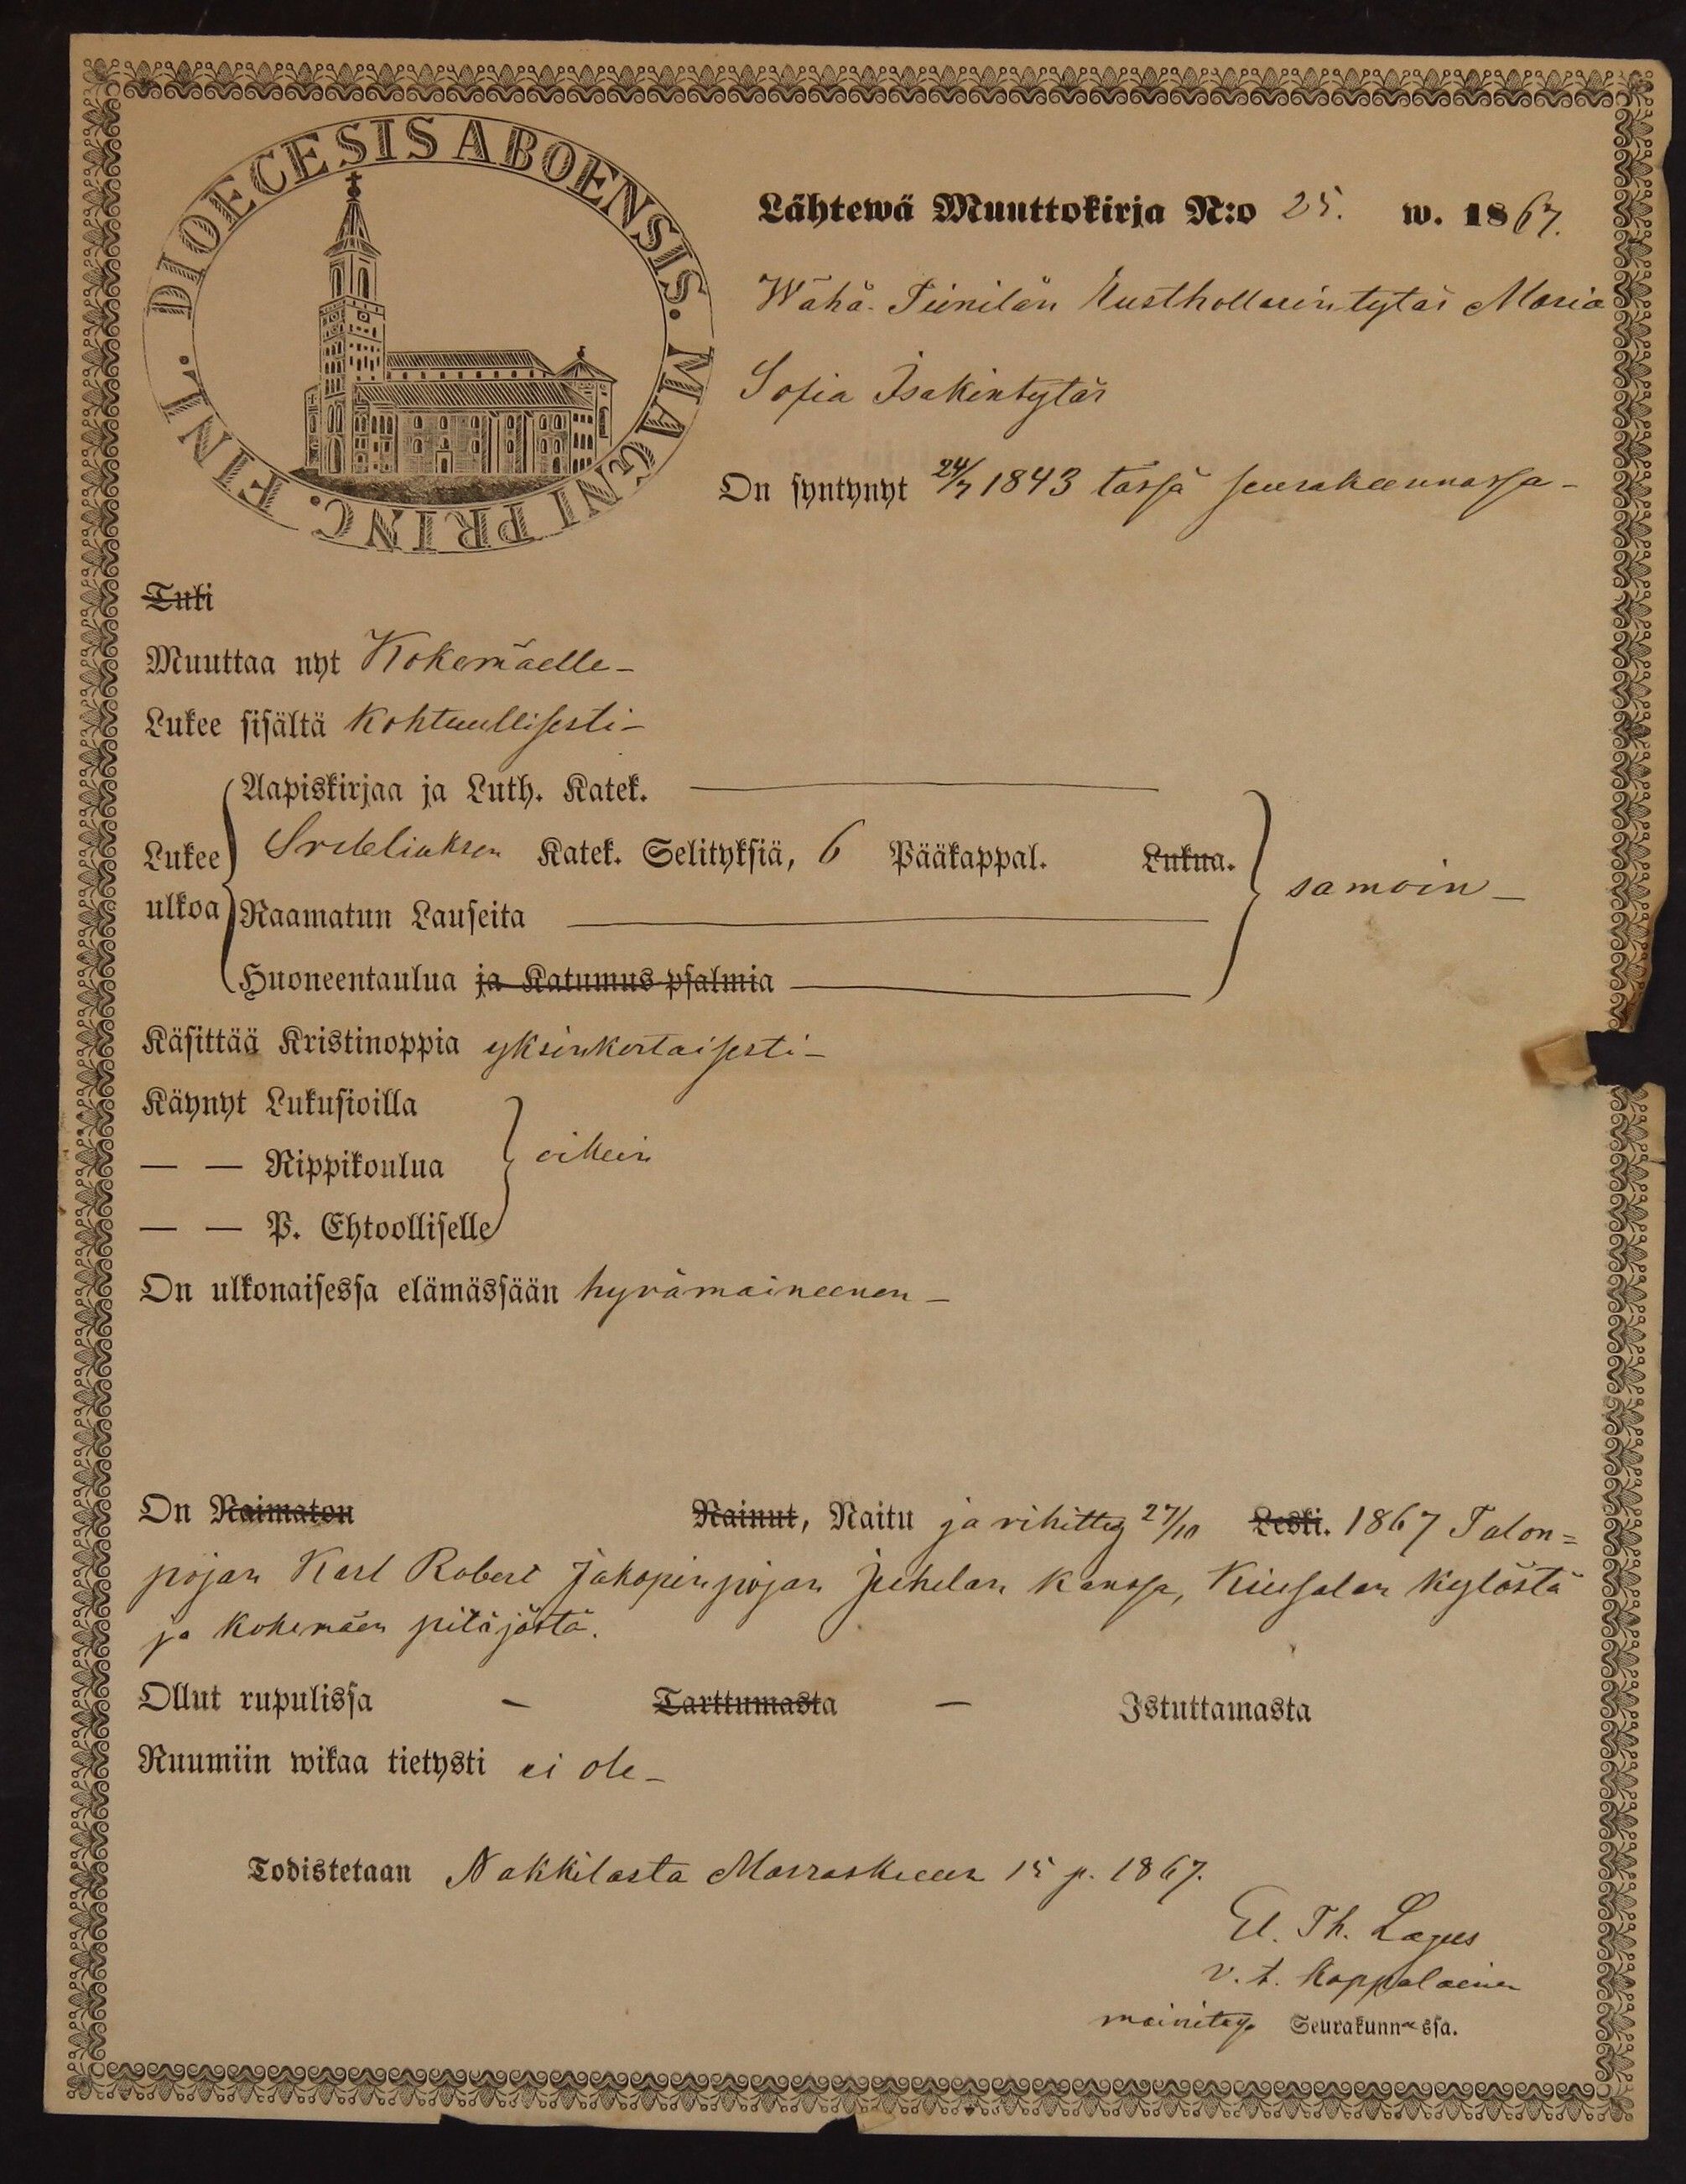 DIOECESIS ABOENSIS. MAGNI PRINC. FINL.
Lähtewä Muuttokirja N:o 25. w. 1867.
Wähä-Piinilän Rusthollarin tytär Maria
Sofia Isakintytär
On syntynyt 24/7 1843 tässä seurakunnassa-
Tuli
Muuttaa nyt Kokemäelle-
Lukee sisältä Kohtuullisesti-
Aapiskirjaa ja Luth. Katek.
Lukee Svebeliuksen Katek. Selityksiä, 6 Pääkappal. Lukua. samoin-
ulkoa Raamatun Lauseita
Huoneentaulua ja Katumus-psalmia
Käsittää Kristinoppia yksinkertaisesti-
Käynyt Lukusioilla
— — Rippikoulua oikein
— — P. Ehtoolliselle
On ulkonaisessa elämässään hyvämaineenen-
On Naimaton Nainut, Naitu ja vihitty 27/10 Leski. 1867 Talon=
pojan Karl Robert Jakopinpojan Juhelan kanssa, Kiusalan kylästä
ja kokemäen pitäjästä.
Ollut rupulissa - Tarttumasta - Istuttamasta
Ruumiin wikaa tietysti ei ole-
Todistetaan Nakkilasta Marraskuun 15 p. 1867.
El. Th. Lagus
v. t. Kappalainen
mainitus. Seurakunnassa.